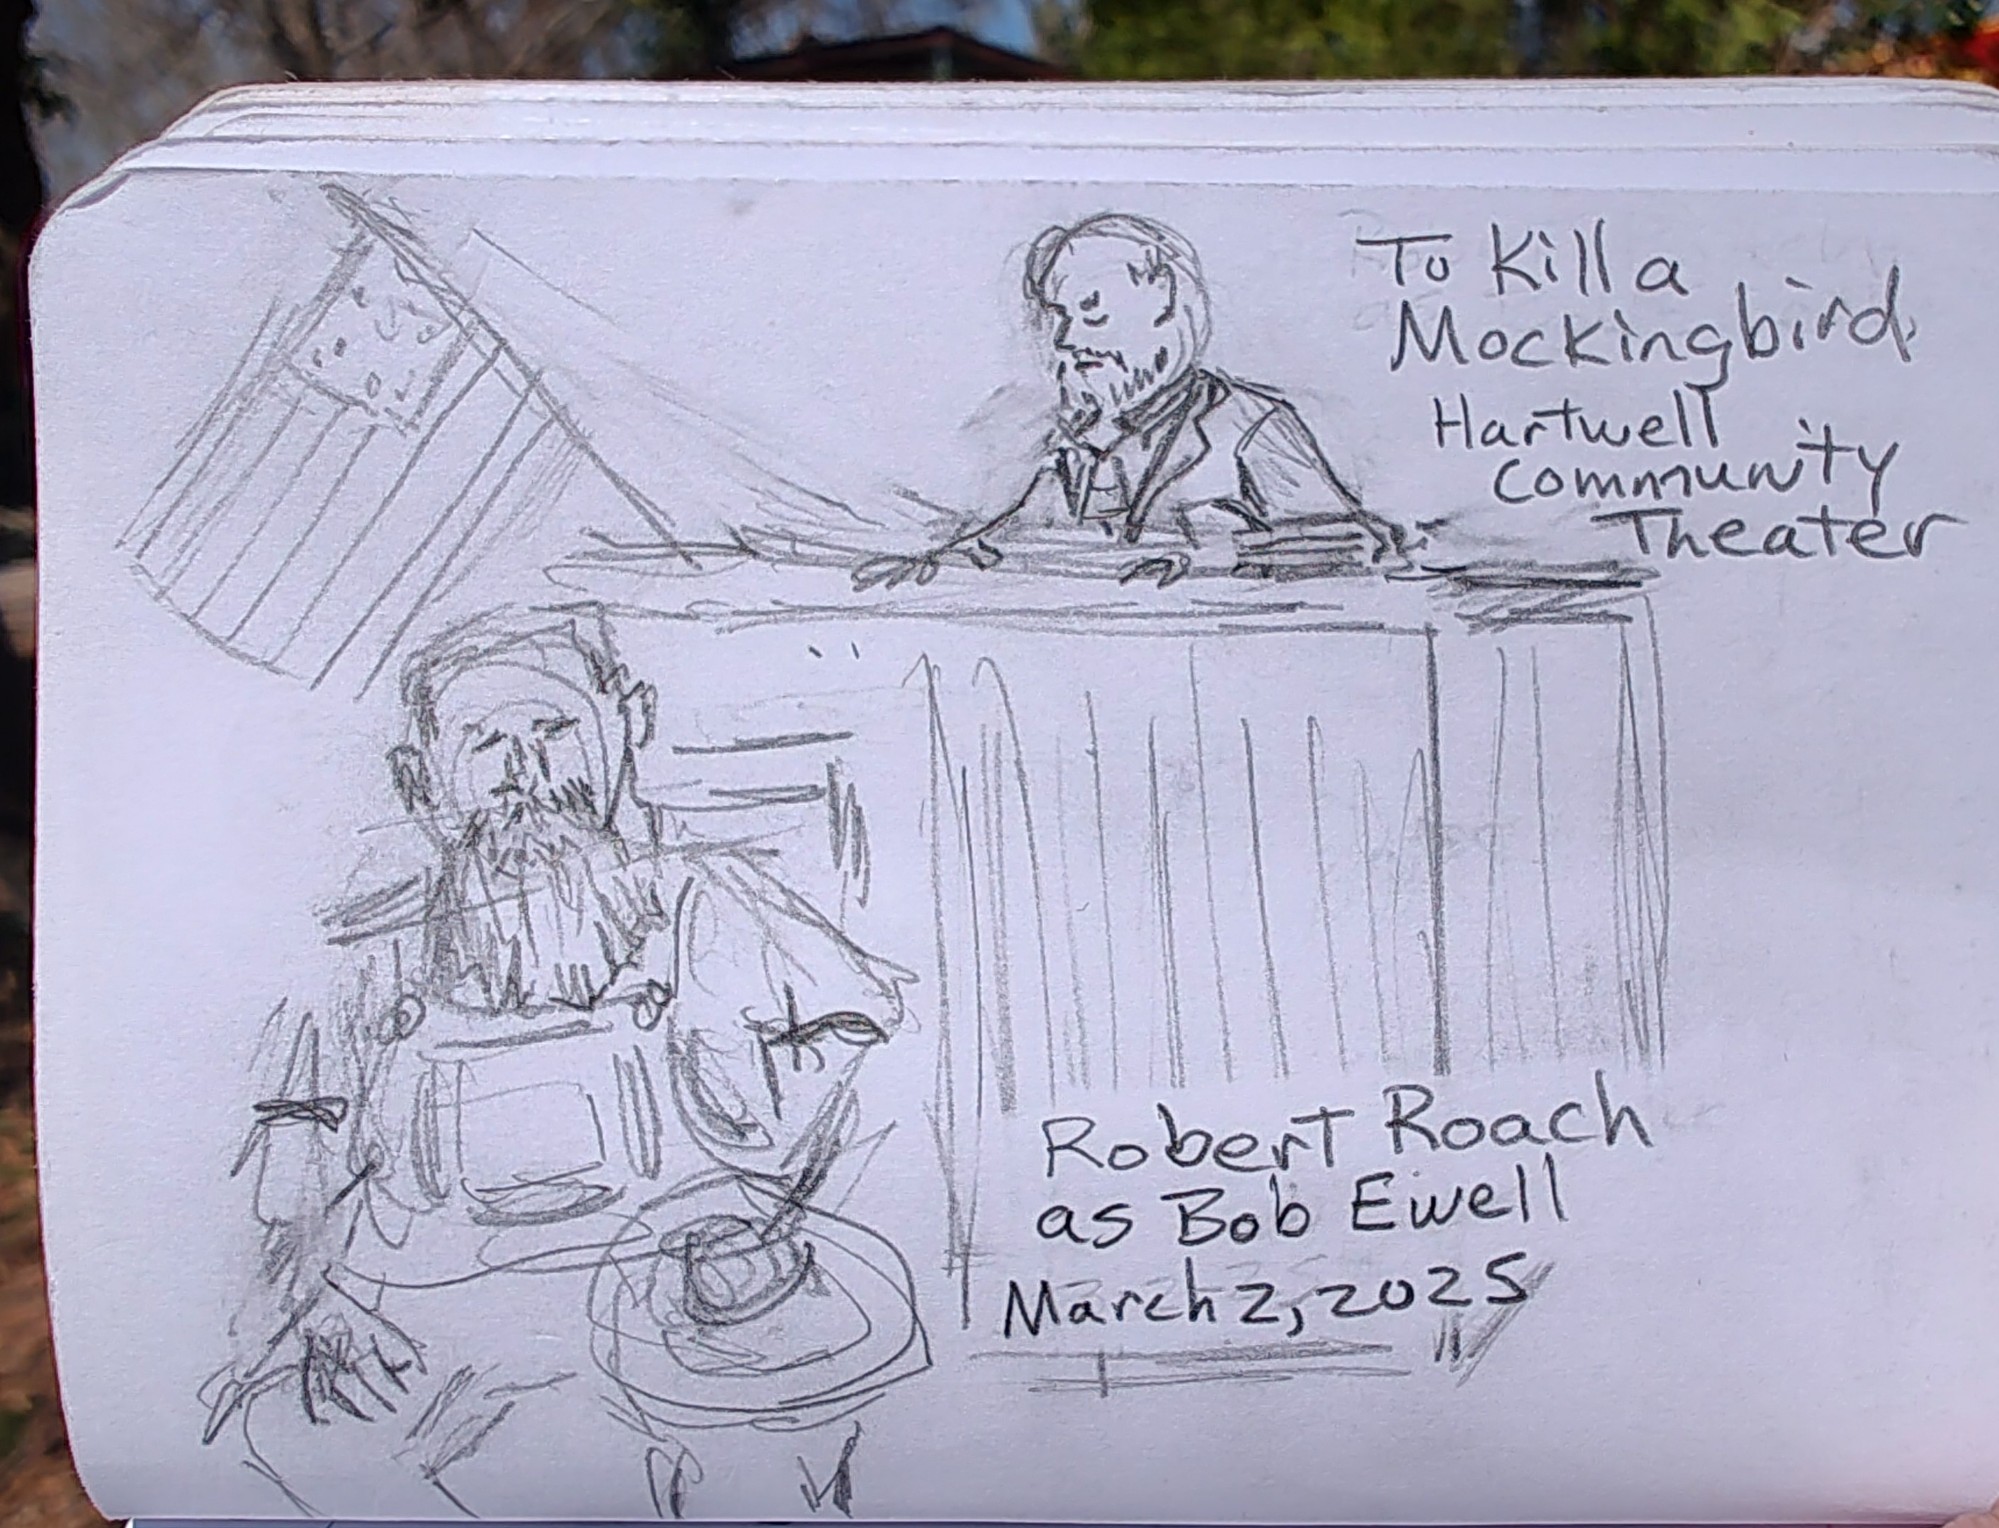 To Kill a
Mockingbird
Hartwell
Community
Theater
Robert Roach
as Bob Ewell
March 2, 2025